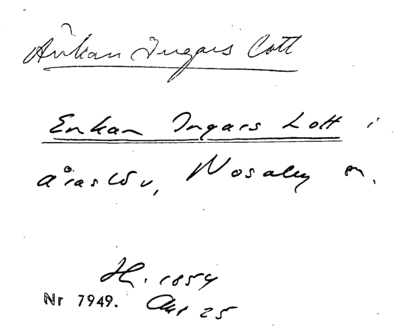 Änkan Ingars Lott
Enkan Ingars Lott i
åraslöv, Nosaby sn.
H. 1854
Nr 7949. Akt 25